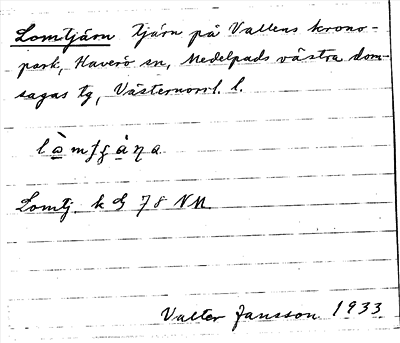 Lomtjärn tjärn på Vallens krono-
park, Haverö sn, Medelpads västra dom-
sagas tg, Västernorrl. l.
Lomtj. k G 78 NM.
Valter Jansson 1933